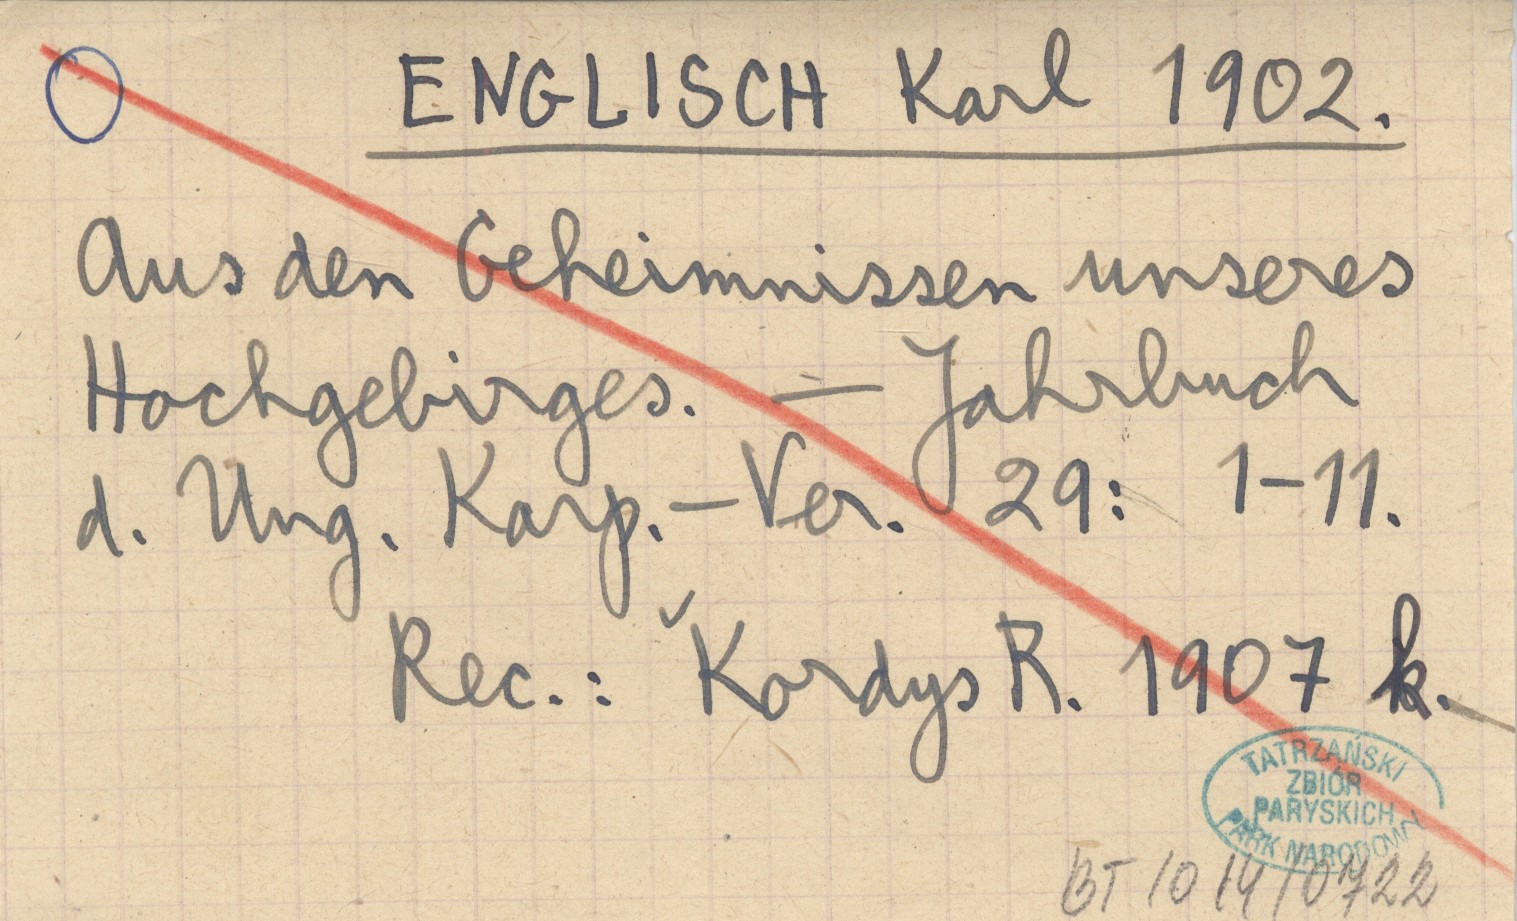 ENGLISCH Karl 1902.
Aus den Geheimnissen unseres
Hochgebirges. — Jahrbuch
d. Ung. Karp.-Ver. 29: 1-11.
Rec.: Kordys R. 1907 k.
TATRZAŃSKI
ZBIÓR
PARYSKICH
PARK NARODOWY
BT 10 14/0722